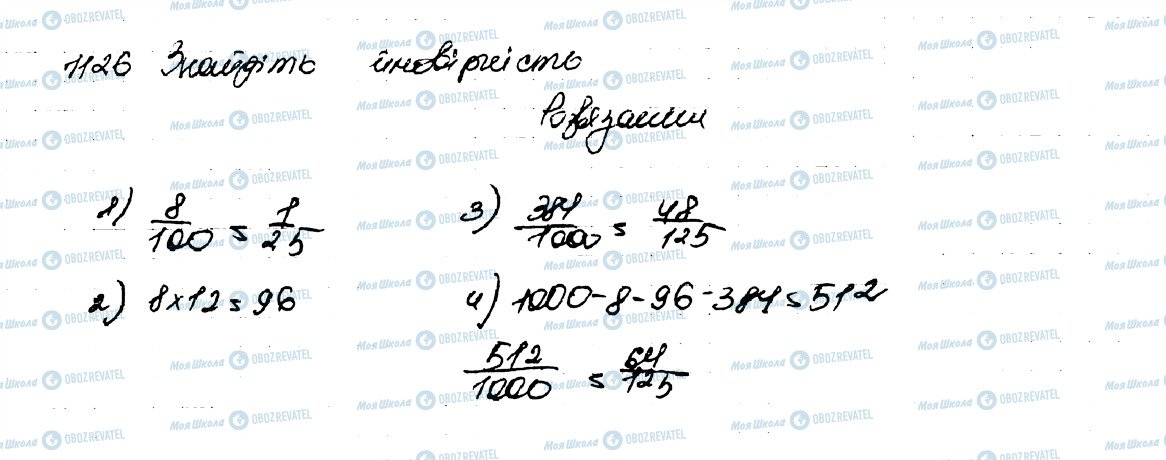 1126 Знайдіть імовірність
Розвязання
1) 8/100 = 1/25
2) 8x12 = 96
3) 384/1000 = 48/125
4) 1000-8-96-384 = 512
512/1000 = 64/125
МояШкола OBOZREVATEL